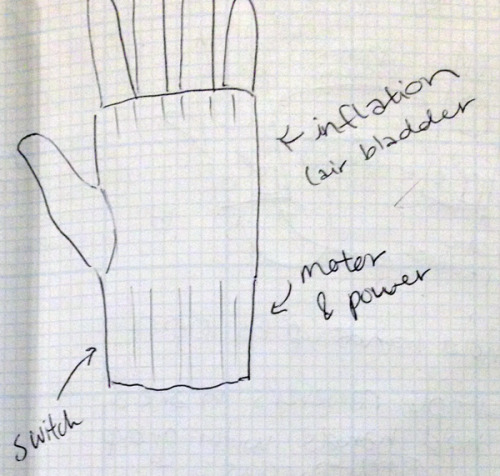 inflation
(air bladder
motor
& power
switch